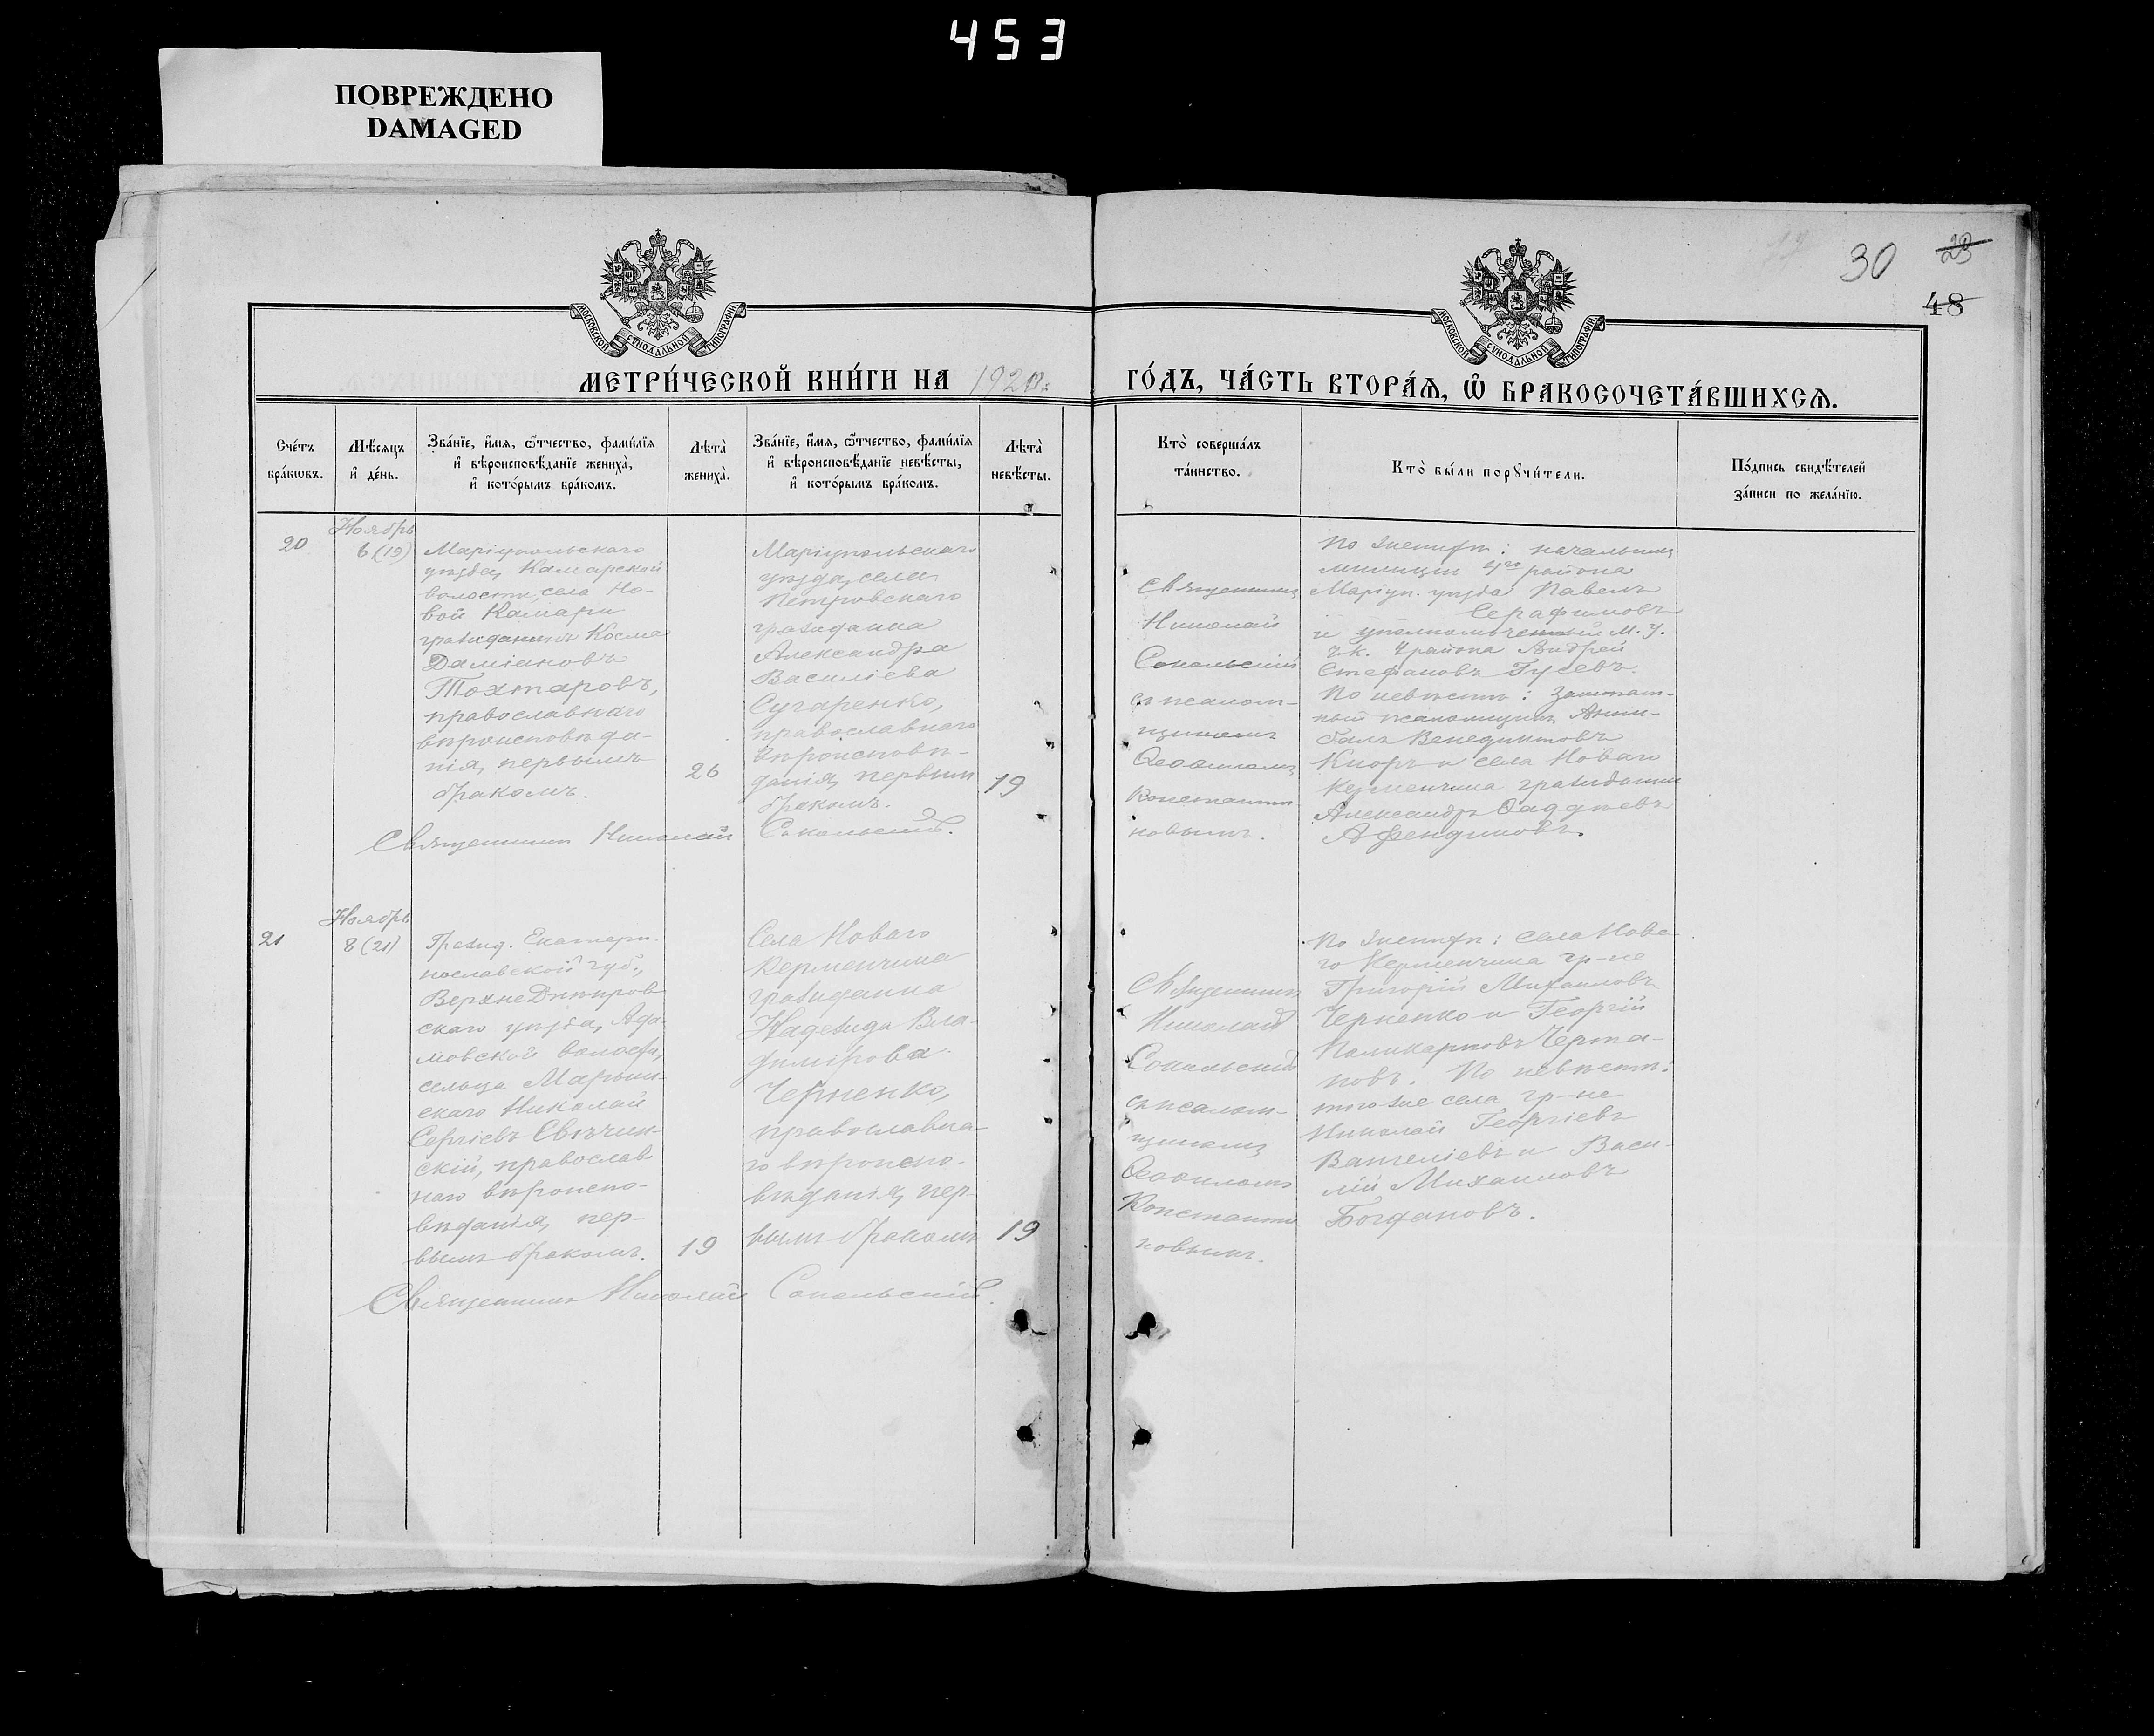 453
ПОВРЕЖДЕНО
DAMAGED
30 23
48
МОСКОВСКОЙ СѴНОДАЛЬНОЙ ТИПОГРАФІИ
МОСКОВСКОЙ СѴНОДАЛЬНОЙ ТИПОГРАФІИ
МЕТРИ́ЧЕСКОЙ КНИ́ГИ НА 1920 г.
ГО́ДЪ, ЧА́СТЬ ВТОРА́Ѧ, Ѽ БРАКОСОЧЕТА́ВШИХСѦ.
Сче́тъ
бра́кѡвъ.
Мѣ́сѧцъ
и҆ де́нь.
Зва́нїе, и҆́мѧ, ѻ҆́тчество, фами́лїѧ
и҆ вѣроисповѣ́данїе жениха̀,
и҆ кото́рымъ бра́комъ.
Лѣта̀
жениха̀.
Зва́нїе, и҆́мѧ, ѻ҆́тчество, фами́лїѧ
и҆ вѣроисповѣ́данїе невѣ́сты,
и҆ кото́рымъ бра́комъ.
Лѣта̀
невѣ́сты.
Кто̀ соверша́лъ
та́инство.
Кто̀ бы́ли порꙋчи́тели.
По́дпись свидѣ́телей
за́писи по жела́нїю.
20
Ноябрь
6 (19)
Маріупольскаго
уѣзда, Камарской
волости, села Но-
вой Камари
гражданинъ Косма
Даміановъ
Тохтаровъ,
православнаго
вѣроисповѣда-
нія, первымъ
бракомъ.
26
Маріупольскаго
уѣзда, села
Петровскаго
гражданка
Александра
Василіева
Сугаренко,
православнаго
вѣроисповѣ-
данія, первым
бракомъ.
19
Священникъ Николай Сокольскій.
Священникъ
Николай
Сокольскій
съ псалом-
щикомъ
Ѳеофиломъ
Константи
новымъ.
По женихѣ: начальникъ
милиции района
Маріуп. уѣзда Павелъ
Серафимовъ
и уполномоченный М. У.
Ч.К. 4 района Андрей
Стефановъ Гусевъ.
По невѣстѣ: заштат-
ный псаломщикъ
Венедиктовъ
и села Новаго
Керменчика гражданин
Александръ Фаддѣевъ
Афендиковъ.
21
Ноябрь
8 (21)
Гражд. Екатери-
нославской губ.,
ВерхнеДнѣпров
скаго уѣзда, Ада-
мовской волости,
сельца Марьин-
скаго Николай
Сергіевъ Свѣчин-
скій, православ-
наго вѣроиспо-
вѣданія, пер-
вымъ бракомъ.
19
Села Новаго
Керменчика
гражданка
Надежда Вла-
димірова
Черненко,
православна-
го вѣроиспо-
вѣданія, пер-
вымъ бракомъ
19
Священникъ Николай Сокольскій.
Священникъ
Николай
Сокольскій
съ псалом-
щикомъ
Ѳеофиломъ
Константи
новымъ.
По женихѣ: села Нова-
го Керменчика гр-не
Григорій Михаиловъ
Черненко и Георгій
Поликарповъ Черта-
новъ. По невѣстѣ:
того же села гр-не
Николай Георгіевъ
Вангеліевъ и Васи-
лій Михаиловъ
Богдановъ.